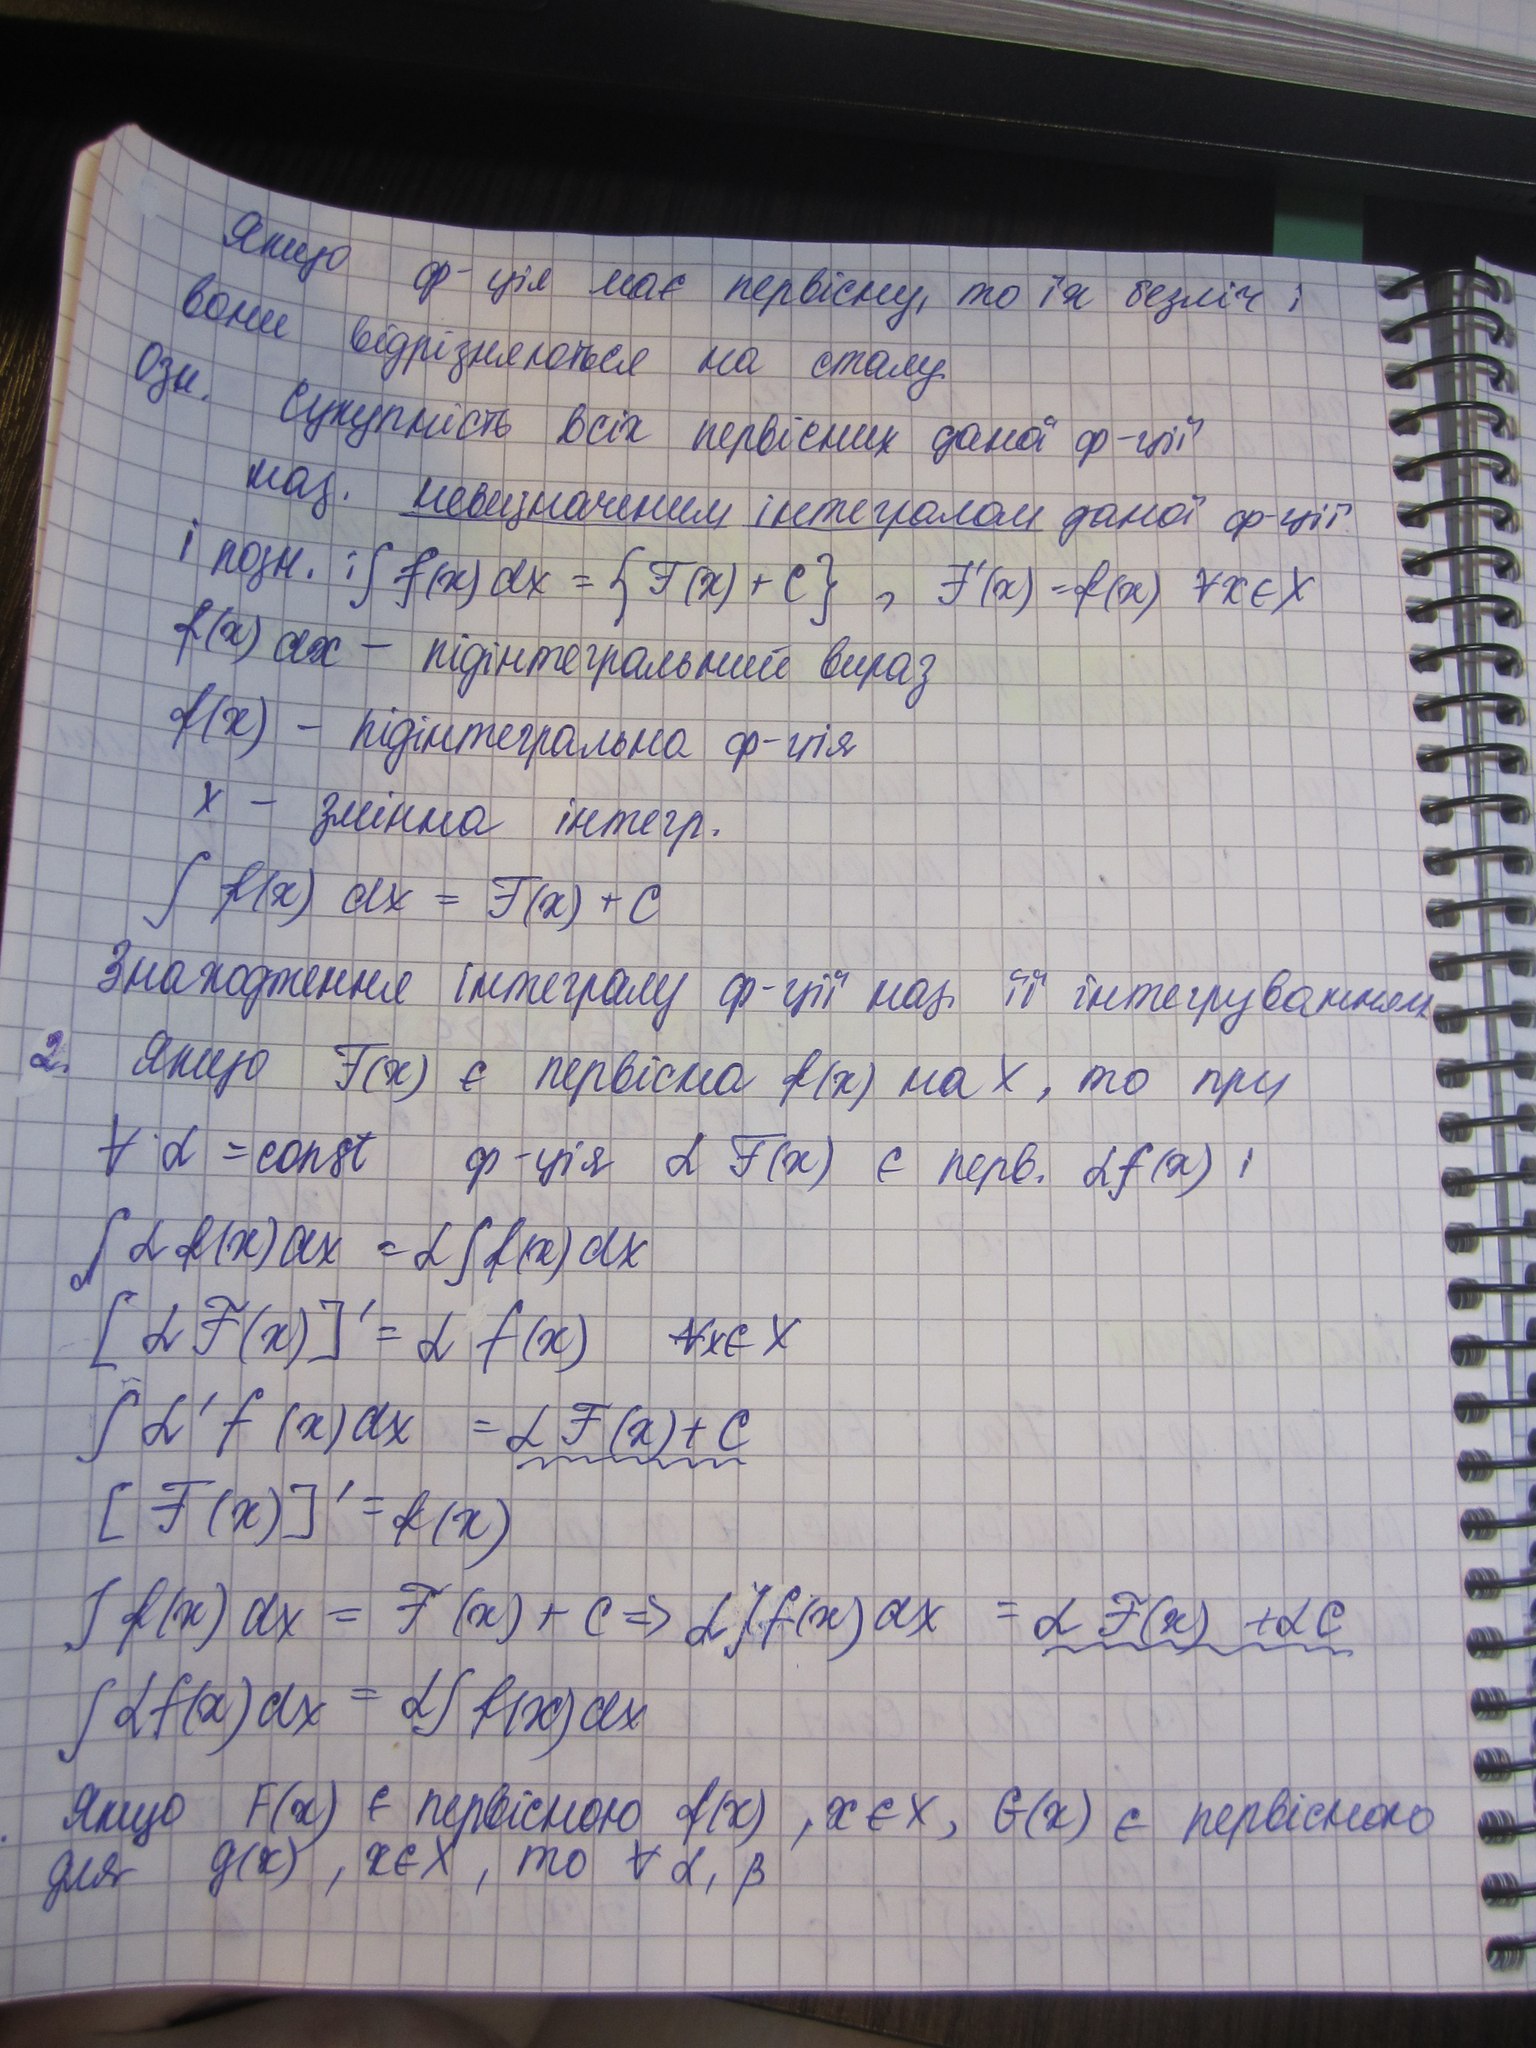 Якщо ф-ція має первісну, то їх безліч і
вони відрізняються на сталу.
Озн. Сукупність всіх первісних даної ф-ції
наз. невизначеним інтегралом даної ф-ції
і позн. : ∫ f(x) dx = { F(x) + C } , F'(x) = f(x) ∀x ∈ X
f(x) dx – підінтегральний вираз
f(x) – підінтегральна ф-ція
x – змінна інтегр.
∫ f(x) dx = F(x) + C
Знаходження інтегралу ф-ції наз. її інтегруванням
2. Якщо F(x) є первісна f(x) на X, то при
∀ α = const ф-ція α F(x) є перв. αf(x) і
∫ α f(x) dx = α ∫ f(x) dx
[ α F(x) ]' = α f(x) ∀x ∈ X
∫ α' f (x) dx = α F(x) + C
[ F(x) ]' = f(x)
∫ f(x) dx = F(x) + C => α ∫ f(x) dx = α F(x) + αC
∫ αf(x) dx = α∫ f(x) dx
. Якщо F(x) є первісною f(x) , x ∈ X, G(x) є первісною
для g(x) , x ∈ X , то ∀ α, β